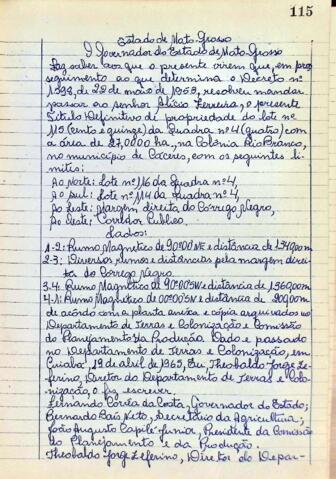 115
Estado de Mato-Grosso
O Governador do Estado de Mato-Grosso
Faz saber aos que o presente virem que, em pro-
seguimento ao que determina o Decreto nº
1.898, de 22 de maio de 1953, resolveu mandar
passar ao senhor Alicio Ferreira, o presente
Titulo Definitivo de propriedade do lote nº
115 (cento e quinze) da Quadra nº 4 (quatro) com
a área de 27,0000 ha., na Colônia Rio Branco,
no município de Cáceres, com os seguintes li-
mites:
Ao Norte: Lote nº 116 da Quadra nº 4,
Ao Sul: Lote nº 114 da Quadra nº 4,
Ao Leste: Margem direita do Córrego Negro,
Ao Oeste: Corredor Publico.
Lados:
1-2: Rumo Magnetico de 90º00'NE e distância de 1.340,00m
2-3: Diversos rumos e distâncias pela margem direi-
ta do Córrego Negro.
3-4: Rumo Magnetico de 90º00'SW e distância de 1.360,00m
4-1: Rumo Magnetico de 00º00'SN e distância de 200,00m
de acôrdo com a planta anexa e cópia arquivadas no
Departamento de Terras e Colonização e Comissão
do Planejamento da Produção. Dado e passado
no Departamento de Terras e Colonização, em
Cuiabá, 19 de abril de 1965, Eu, Theobaldo Jorge Ze-
ferino, Diretor do Departamento de Terras e Colo-
nização, o fiz escrever.
Fernando Corrêa da Costa, Governador do Estado;
Bernardo Bais Neto, Secretário da Agricultura;
João Augusto Capilé Junior, Presidente da Comissão
do Planejamento e da Produção.
Theobaldo Jorge Zeferino, Diretor do Depar-